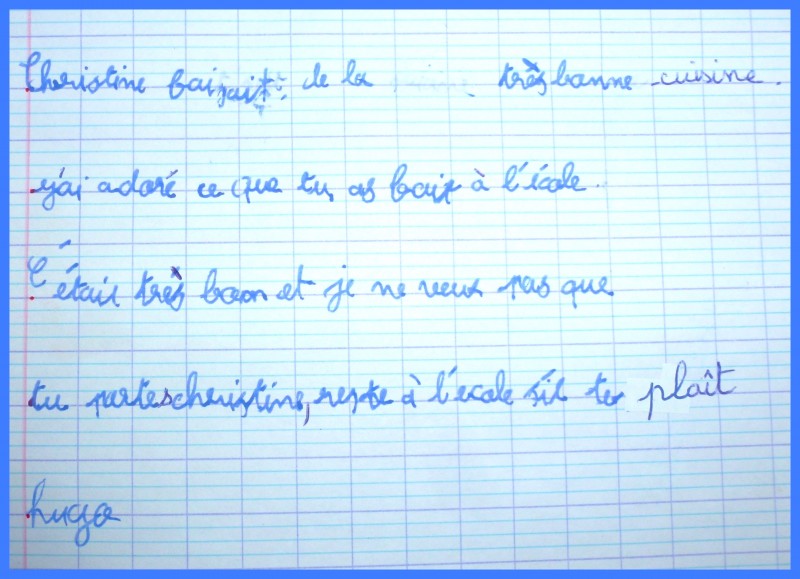 Christine faisait de la très bonne cuisine.
j'ai adoré ce que tu as fait à l'école.
C'était très bon et je ne veux pas que
tu partes christine, reste à l'école s'il te plaît
hugo